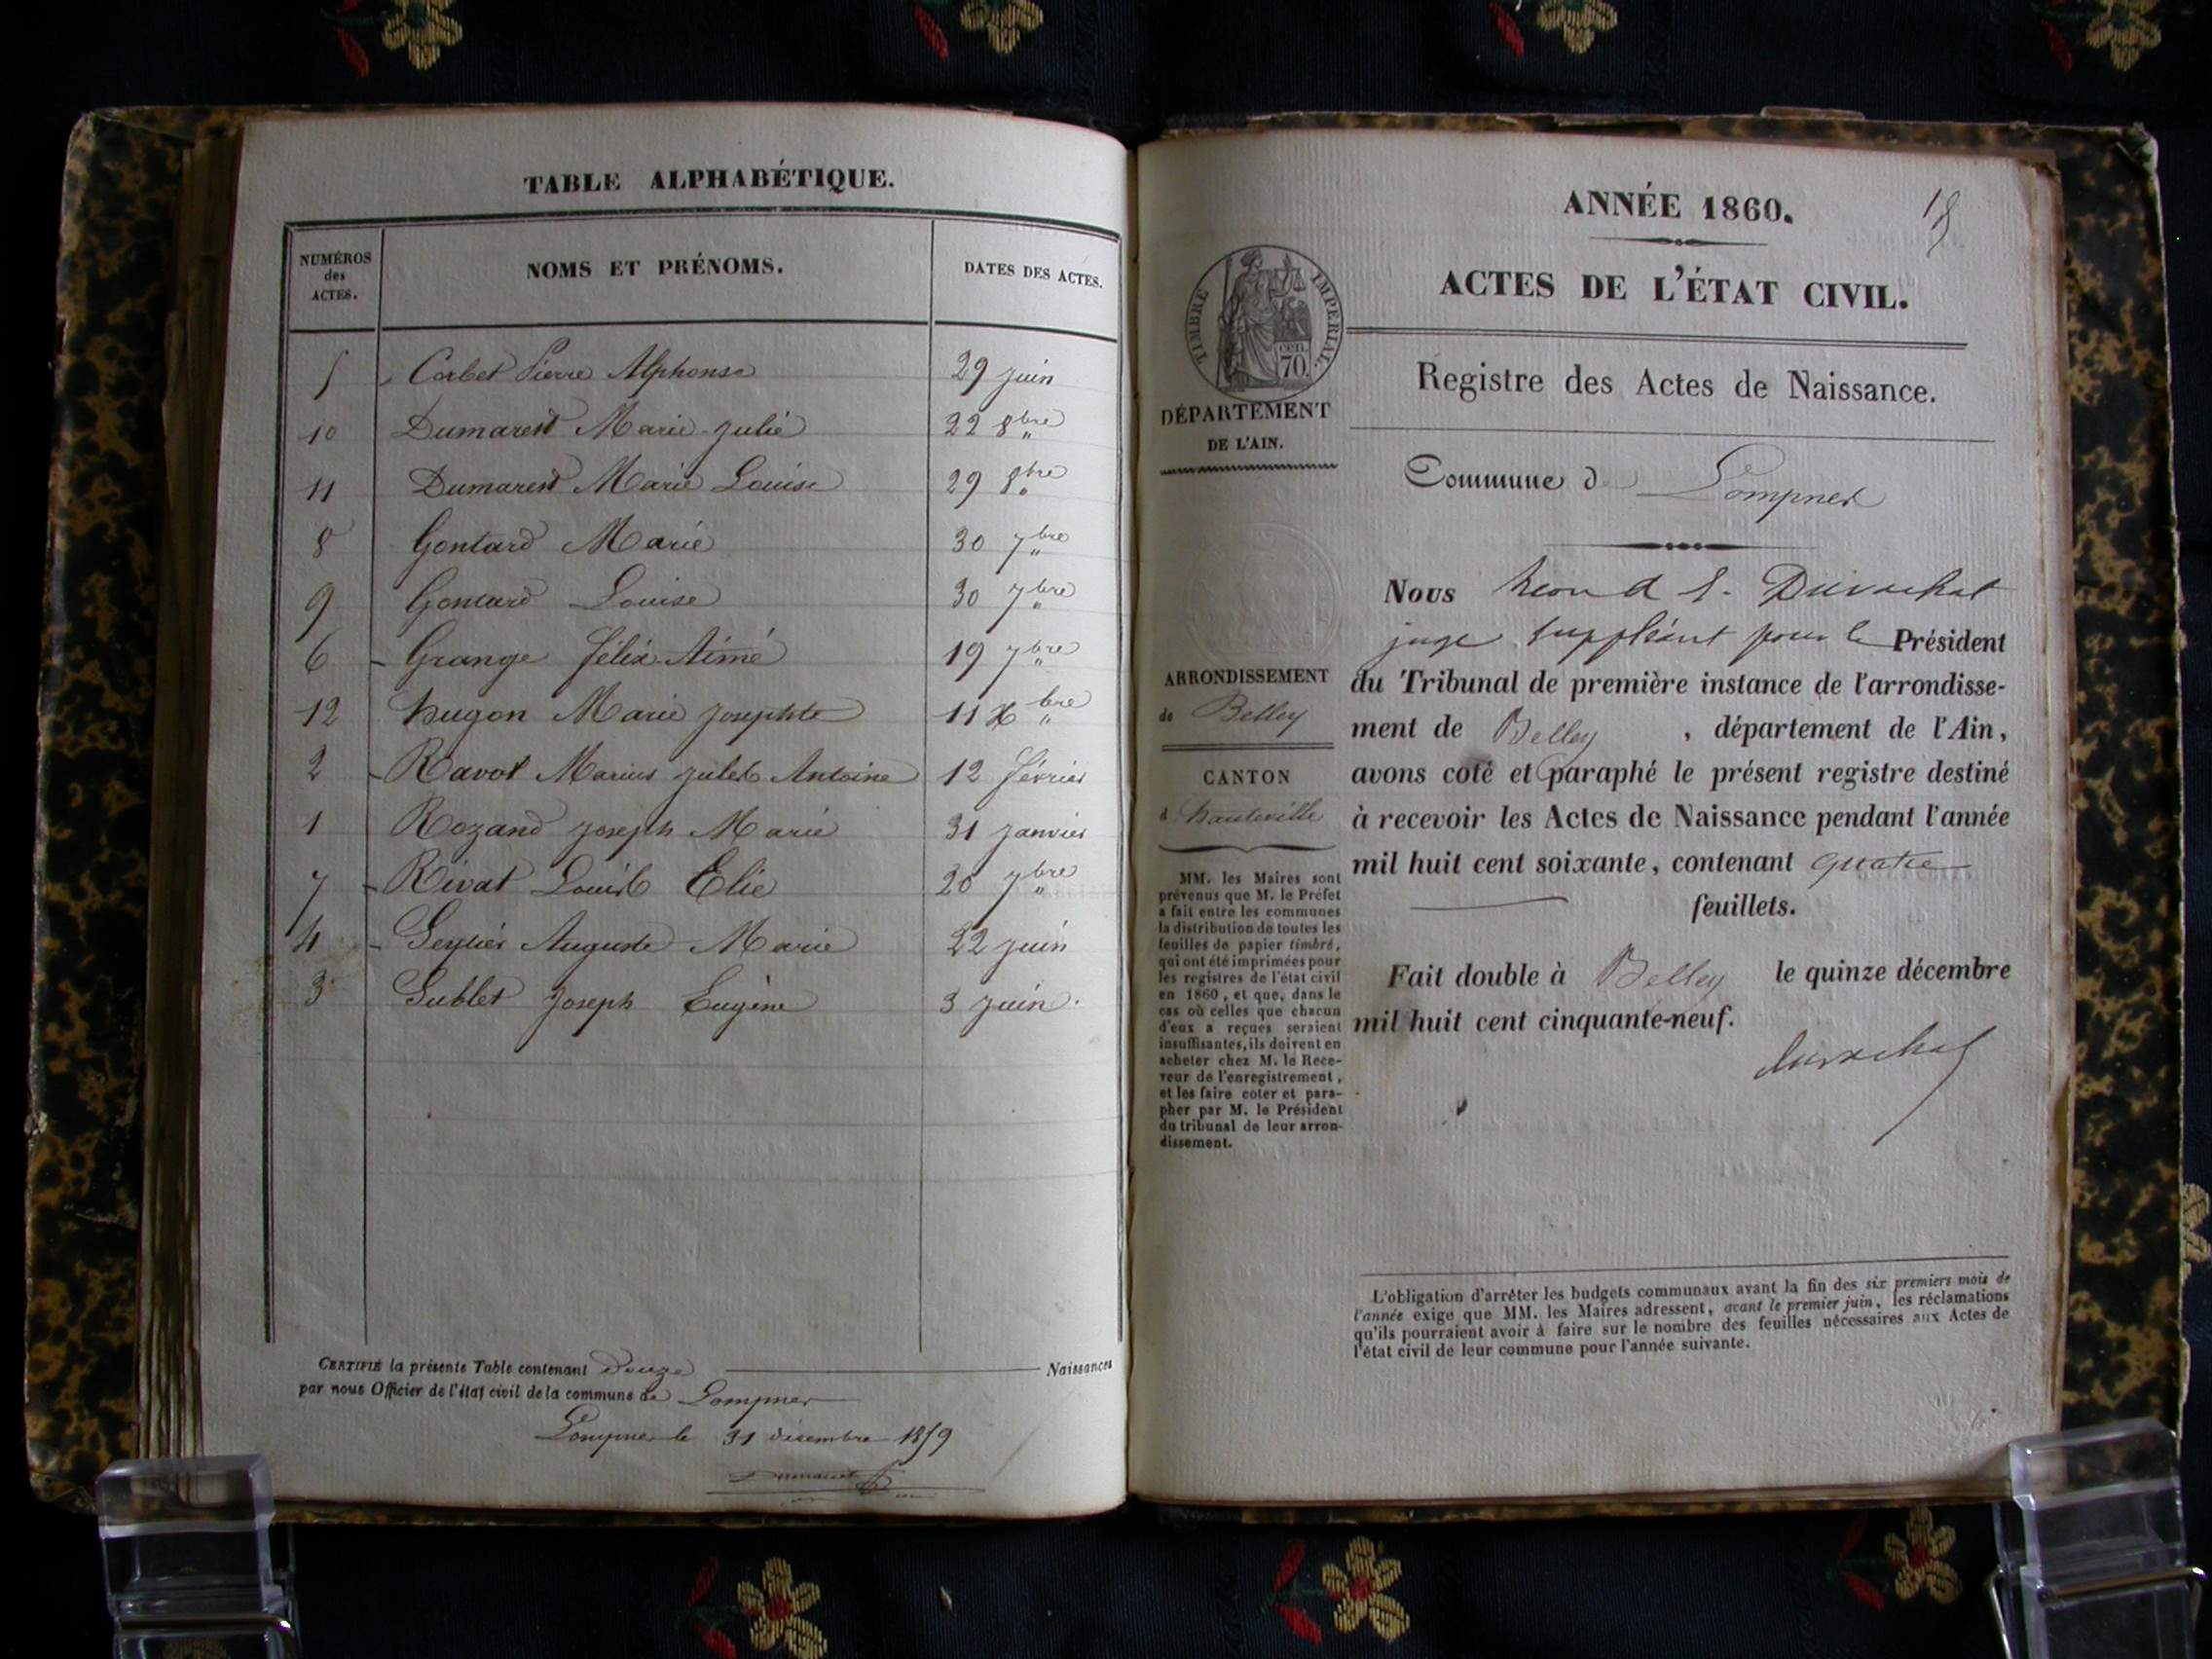 TABLE ALPHABÉTIQUE.
NUMÉROS des ACTES. NOMS ET PRÉNOMS. DATES DES ACTES.
5 Corbet Pierre Alphonse 29 juin
10 Dumarest Marie Julie 22 8bre
11 Dumarest Marie Louise 29 8bre
8 Gontard Marie 30 7bre
9 Gontard Louise 30 7bre
6 Grange Félix Aimé 19 7bre
12 hugon Marie Josephte 11 Xbre
2 Ravot Marius Jules Antoine 12 février
1 Rozand Joseph Marie 31 janvier
7 Rivat Louis Elie 20 7bre
4 Auguste Marie 22 juin
3 Gublet Joseph Eugène 3 juin.
CERTIFIÉ la présente Table contenant Douze Naissances
par nous Officier de l'état civil de la commune de Lompnes
Lompnes le 31 décembre 1859
Dumarest
ANNÉE 1860.
ACTES DE L'ÉTAT CIVIL.
TIMBRE IMPÉRIAL
70. cen.
Registre des Actes de Naissance.
DÉPARTEMENT
DE L'AIN.
Commune de Lompnes
Nous Duvachat
juge suppléant pour le Président
du Tribunal de première instance de l'arrondisse-
ment de Belley, département de l'Ain,
avons coté et paraphé le présent registre destiné
à recevoir les Actes de Naissance pendant l'année
mil huit cent soixante, contenant quatre
feuillets.
Fait double à Belley le quinze décembre
mil huit cent cinquante-neuf.
Duvachat
ARRONDISSEMENT
de Belley
CANTON
d hauteville
MM. les Maires sont
prévenus que M. le Préfet
a fait entre les communes
la distribution de toutes les
feuilles de papier timbré,
qui ont été imprimées pour
les registres de l'état civil
en 1860, et que, dans le
cas où celles que chacun
d'eux a reçues seraient
insuffisantes, ils doivent en
acheter chez M. le Rece-
veur de l'enregistrement,
et les faire coter et para-
pher par M. le Président
du tribunal de leur arron-
dissement.
L'obligation d'arrêter les budgets communaux avant la fin des six premiers mois de
l'année exige que MM. les Maires adressent, avant le premier juin, les réclamations
qu'ils pourraient avoir à faire sur le nombre des feuilles nécessaires aux Actes de
l'état civil de leur commune pour l'année suivante.